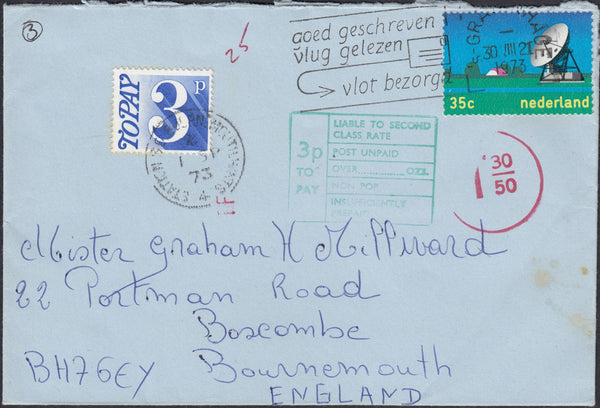 3
25
goed geschreven
vlug gelezen
vlot bezorgd
'S-GRAVENHAGE
30 III 21
1973
35c nederland
TO PAY 3p
73
4
STATION
3p
TO
PAY
LIABLE TO SECOND
CLASS RATE
POST UNPAID
OVER ........ OZS.
NON POP
INSUFFICIENTLY
PREPAID
30
50
Mister Graham H Millward
22 Portman Road
Boscombe
BH76EY Bournemouth
ENGLAND